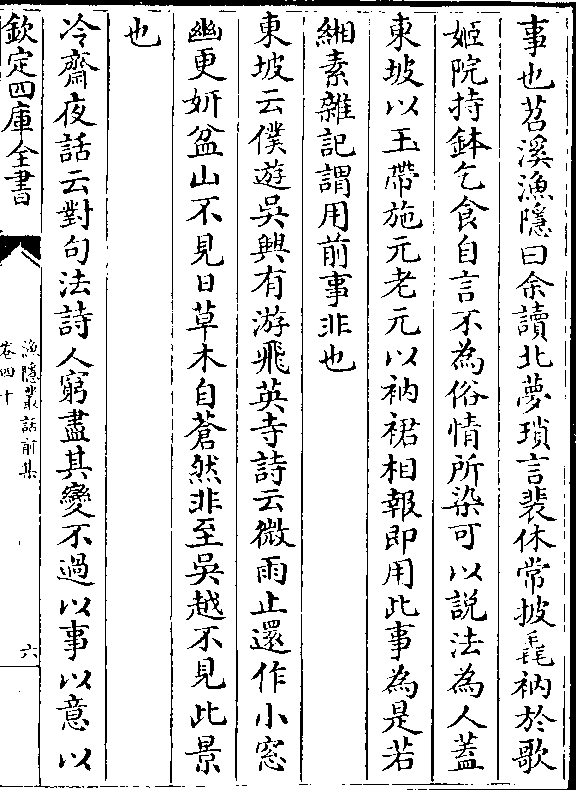 事也苕溪漁隱曰余讀北夢瑣言裴休常披毳衲於歌
姬院持鉢乞食自言不為俗情所染可以說法為人蓋
東坡以玉帶施元老元以衲裙相報即用此事為是若
緗素雜記謂用前事非也
東坡云僕遊吳興有游飛英寺詩云微雨止還作小窓
幽更妍盆山不見日草木自蒼然非至吳越不見此景
也
冷齋夜話云對句法詩人窮盡其變不過以事以意以
欽定四庫全書
漁隱叢話前集
卷四十
六